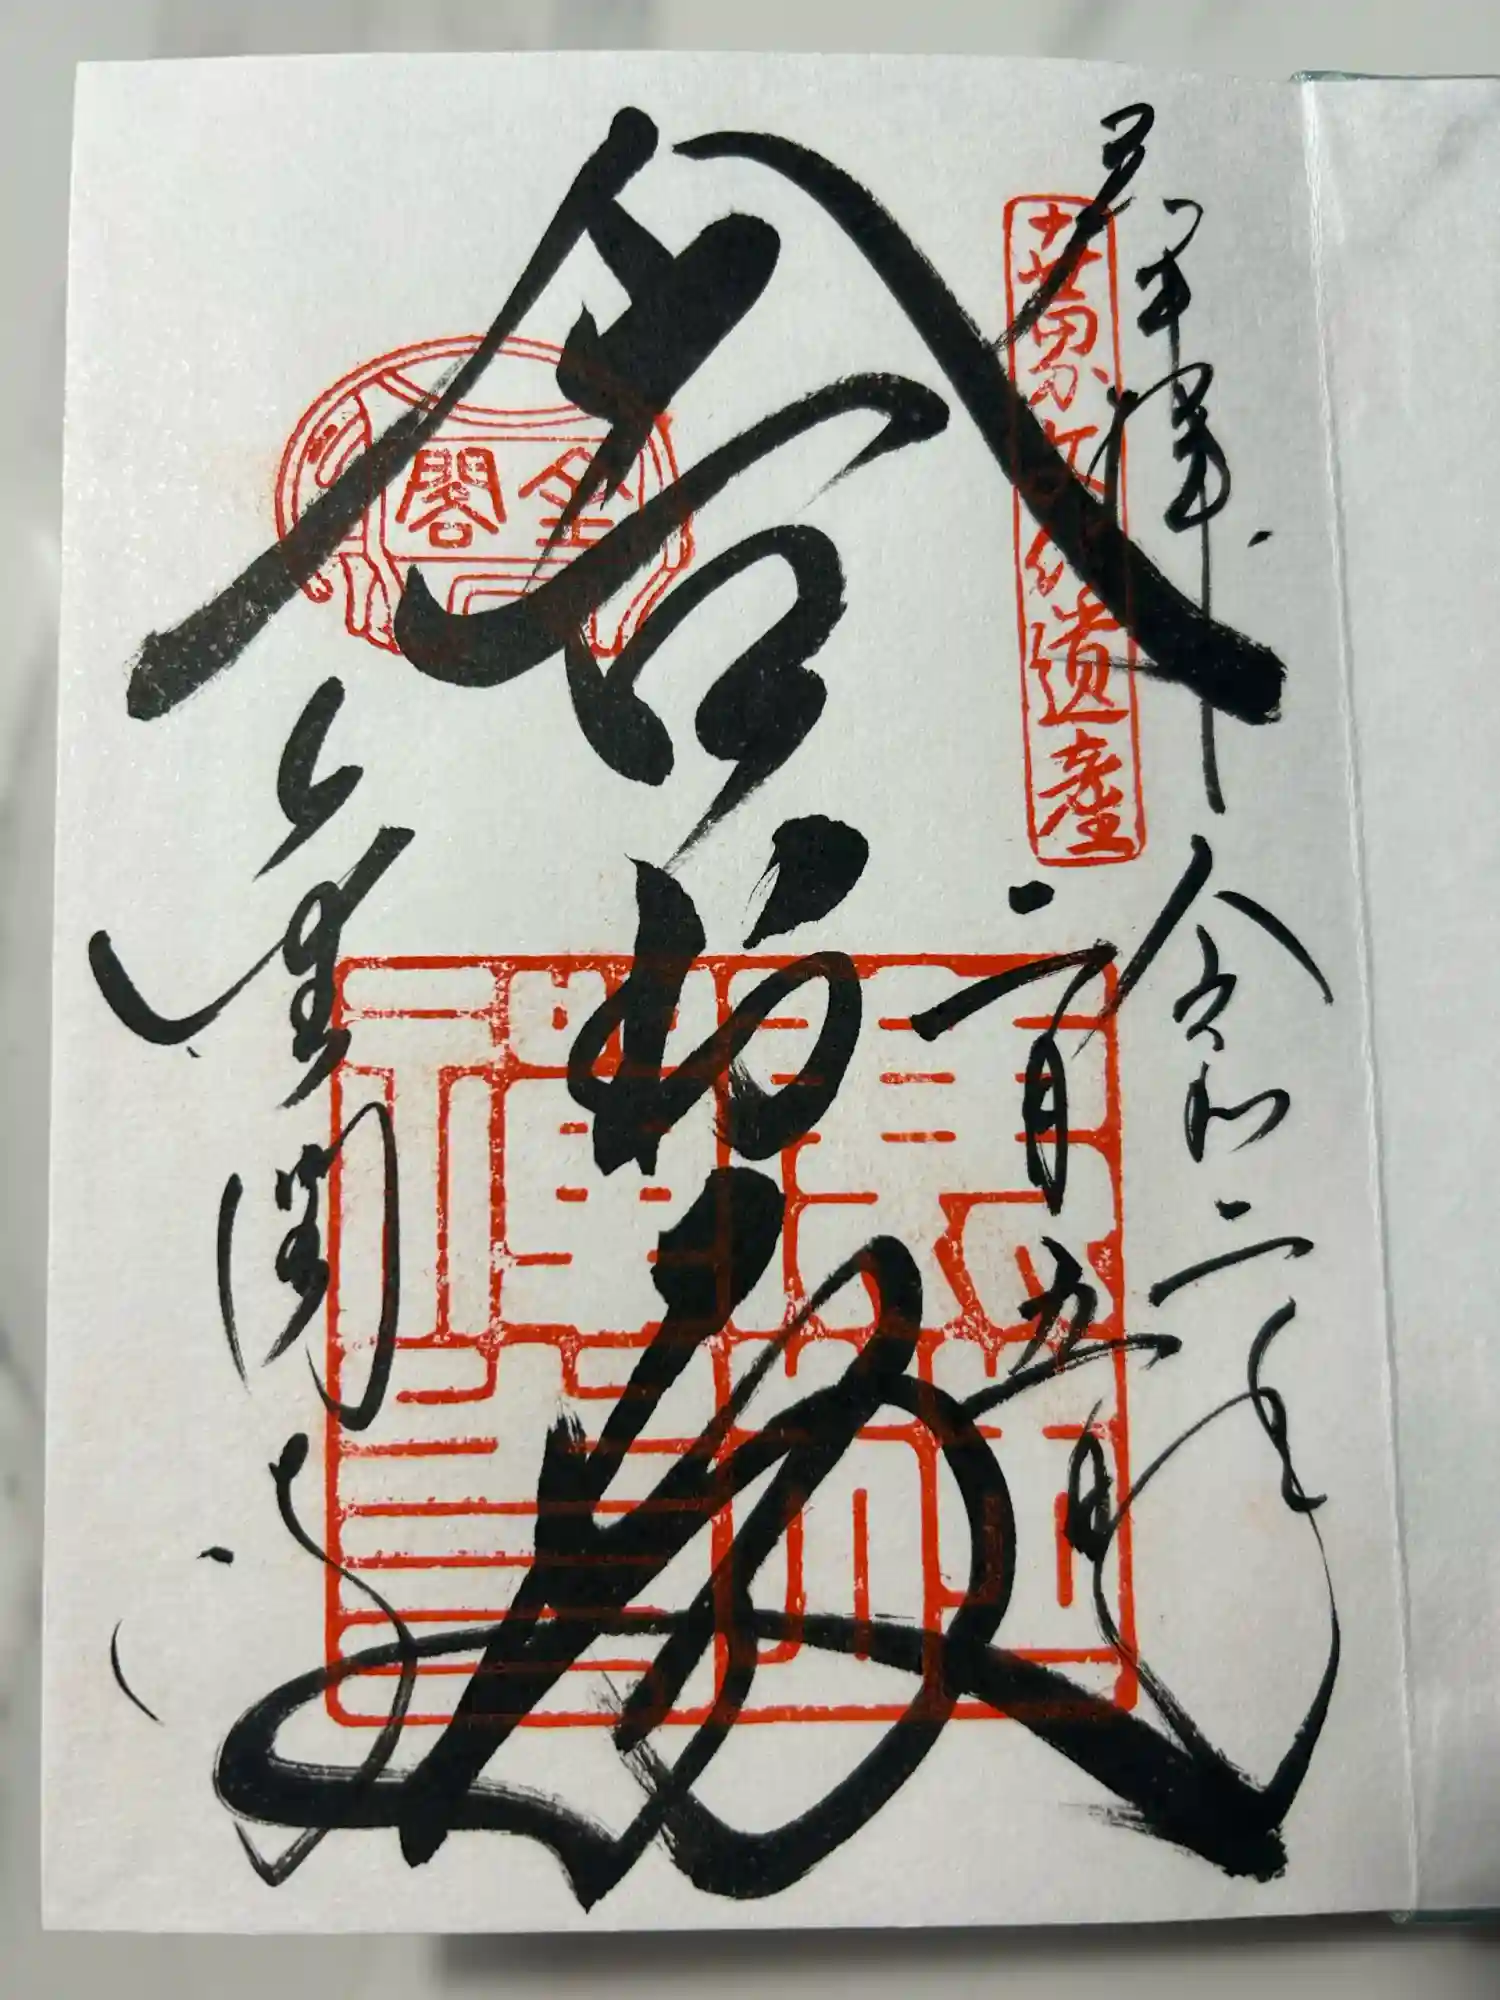 奉拝
令和二年
二月五日
世界文化遺産
舎利殿
金閣
金閣寺